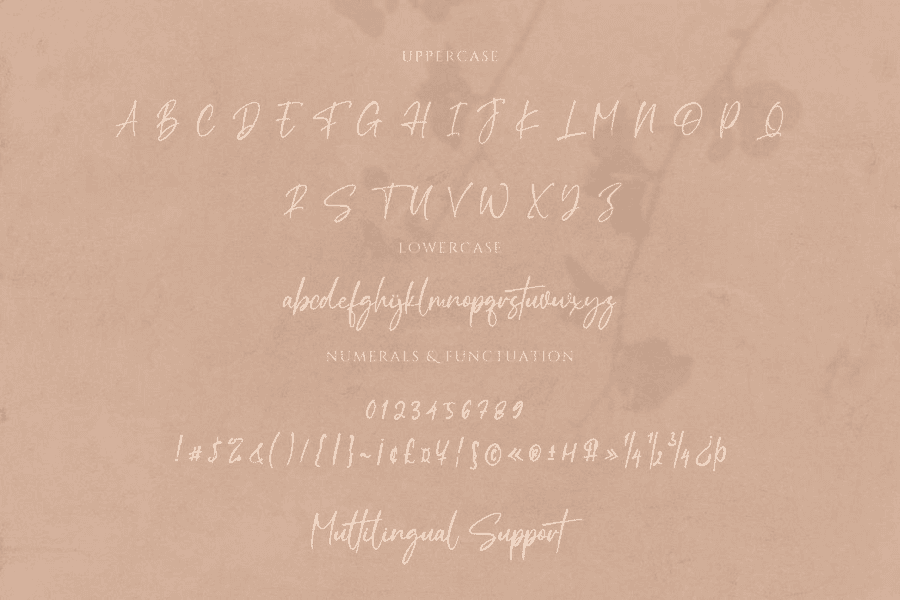 UPPERCASE
A B C D E F G H I J K L M N O P Q
R S T U V W X Y Z
LOWERCASE
abcdefghijklmnopqrstuvwxyz
NUMERALS & FUNCTUATION
0123456789
!#$%&()/[|}~¡¢£¤¥¦§©«®±
»¼½¾¿þ
Multilingual Support